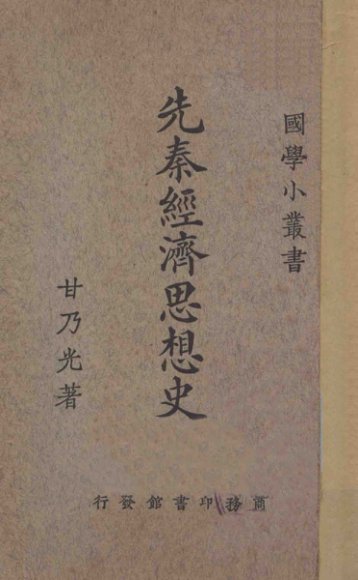 國學小叢書
先秦經濟思想史
甘乃光著
商務印書館發行